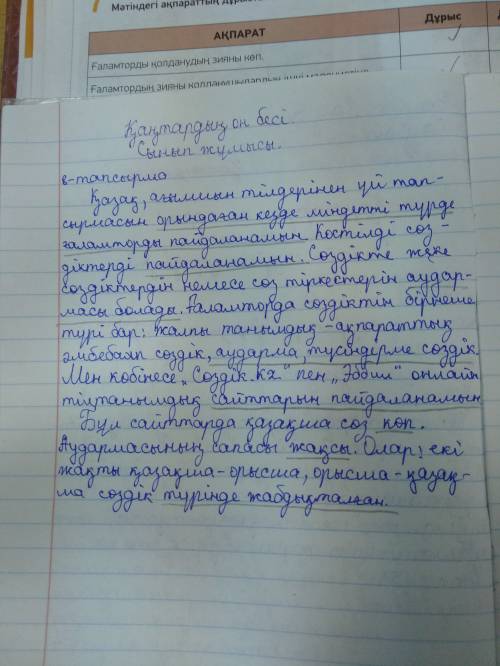 Мәтіндегі ақпараттың дұрыс
АҚПАРАТ
Дұрыс
Ғаламторды қолданудың зияны көп.
Ғаламтордың зияны қолданушылардың
Қаңтардың он бесі.
Сынып жұмысы.
6-тапсырма
Қазақ, ағылшын тілдерінен үй тап-
сырмасын орындаған кезде міндетті түрде
ғаламторды пайдаланамын. Көстілді сөз-
діктерді пайдаланамын. Сөздікте жеке
сөздіктердің немесе сөз тіркестерін аудар-
масы болады. Ғаламторда сөздіктің бірнеше
түрі бар: жалпы танымдық-ақпараттық
әмбебаап сөздік, аударма, түсіндерме сөздік.
Мен көбінесе „Сөздік.кz" пен „Әбөил" онлайн
тілтанымдық сайттарын пайдаланамын
Бұл сайттарда қазақша сөз көп.
Аудармасының сапасы жақсы. Олар: екі
жақты қазақша-орысша, орысша-қазақ-
ша сөздік түрінде жабдықталған.